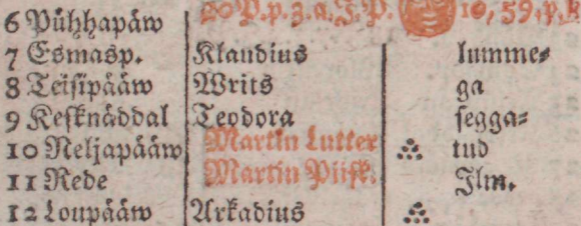 6 Pühhapääw 20 P. p. 3. a. J. P. 10, 59, p. k
7 Esmasp. Klaudius lumme=
8 Teisipääw Writs ga
9 Kesknäddal Teodora segga=
10 Neljapääw Martin Lutter tud
11 Rede Martin Piisk. Ilm.
12 Loupääw Arkadius